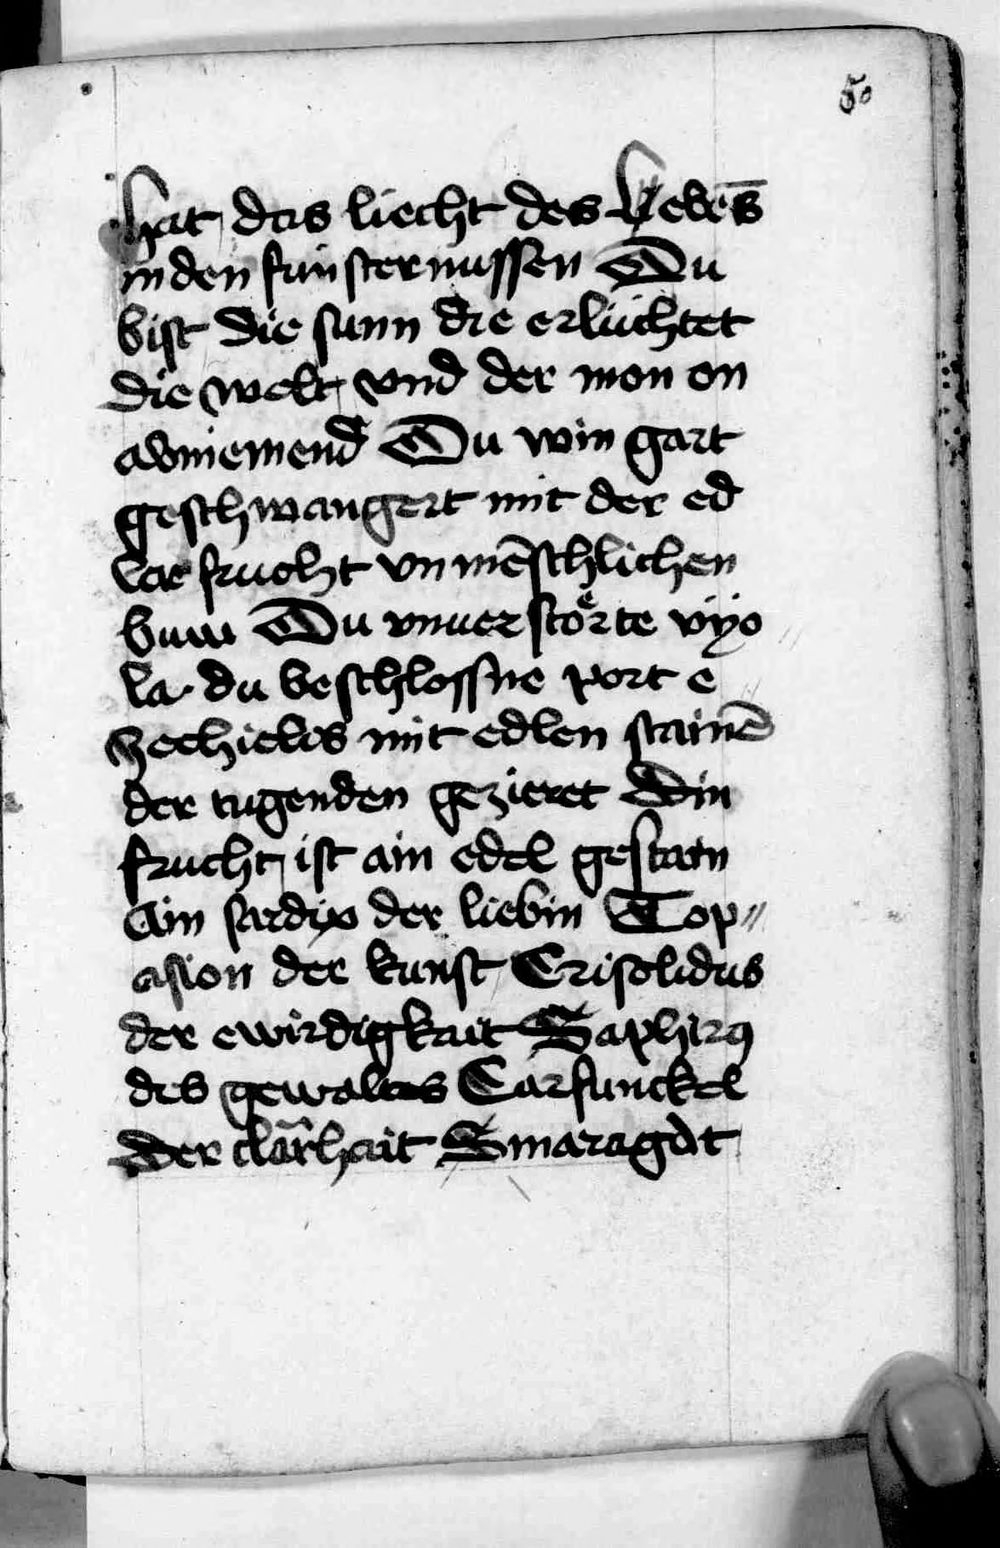 50
hat das liecht des Lebēs
in den finsternussen Du
bist die sunn die erlüchtet
die welt vnd der mon on
abniemend Du win gart
geschwangert mit der ed
lar frucht vn mēschlichen
bum Du vnuerstörte vÿo
la du beschlossne port e
zechielis mit edlen stainē
der tugenden gezieret Din
frucht ist ain edel gestain
Ain sardix der liebin Top〃
asion der kunst Crisolidus
der ewirdigkait Saphirꝯ
des gewaltes Carfunckel
Der clarhait Smaragdt